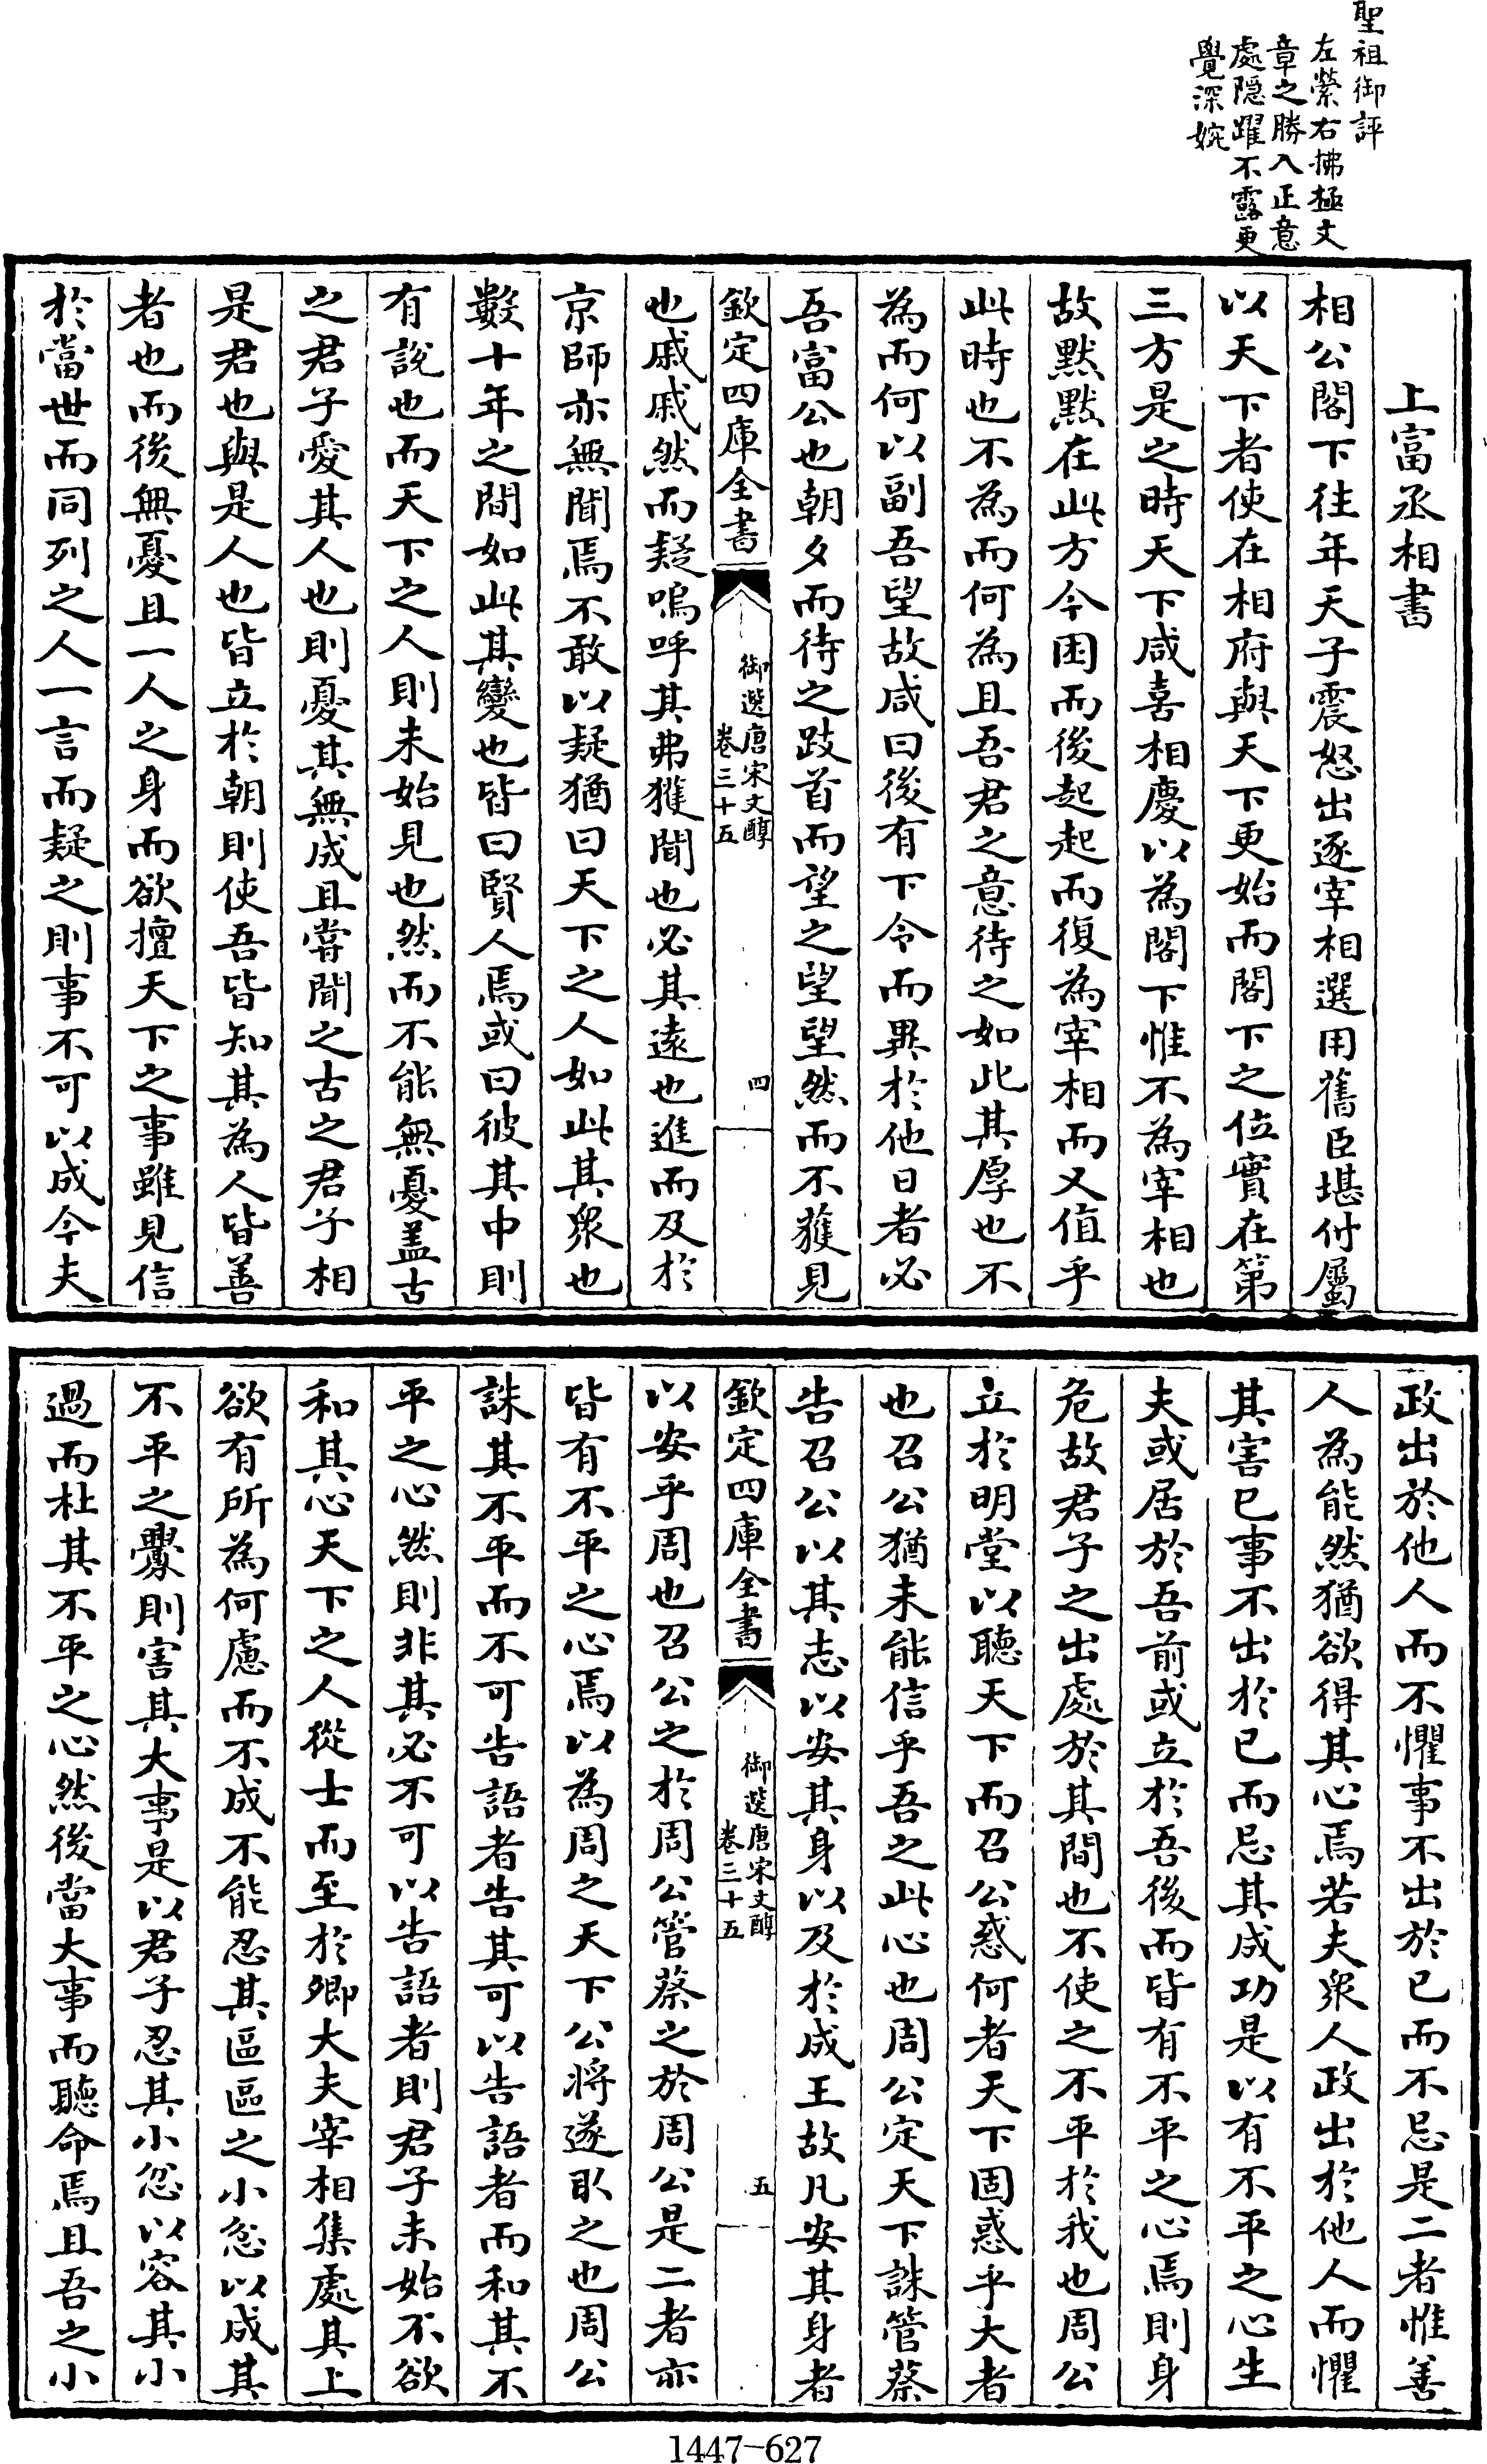 聖祖御評
左縈右拂極文
章之勝入正意
處隱躍不露更
覺深婉
上富丞相書
相公閣下往年天子震怒出逐宰相選用舊臣堪付屬
以天下者使在相府與天下更始而閣下之位實在第
三方是之時天下咸喜相慶以為閣下惟不為宰相也
故默默在此方今困而後起起而復為宰相而又值乎
此時也不為而何為且吾君之意待之如此其厚也不
為而何以副吾望故咸曰後有下令而異於他日者必
吾富公也朝夕而待之跂首而望之望望然而不獲見
欽定四庫全書
御選唐宋文醇
卷三十五
四
也戚戚然而疑嗚呼其弗獲聞也必其遠也進而及於
京師亦無聞焉不敢以疑猶曰天下之人如此其衆也
數十年之間如此其變也皆曰賢人焉或曰彼其中則
有說也而天下之人則未始見也然而不能無憂盖古
之君子愛其人也則憂其無成且嘗聞之古之君子相
是君也與是人也皆立於朝則使吾皆知其為人皆善
者也而後無憂且一人之身而欲擅天下之事雖見信
於當世而同列之人一言而疑之則事不可以成今夫
政出於他人而不懼事不出於已而不忌是二者惟善
人為能然猶欲得其心焉若夫衆人政出於他人而懼
其害已事不出於已而忌其成功是以有不平之心生
夫或居於吾前或立於吾後而皆有不平之心焉則身
危故君子之出處於其間也不使之不平於我也周公
立於明堂以聽天下而召公惑何者天下固惑乎大者
也召公猶未能信乎吾之此心也周公定天下誅管蔡
告召公以其志以安其身以及於成王故凡安其身者
欽定四庫全書
御選唐宋文醇
卷三十五
五
以安乎周也召公之於周公管蔡之於周公是二者亦
皆有不平之心焉以為周之天下公將遂取之也周公
誅其不平而不可告語者告其可以告語者而和其不
平之心然則非其必不可以告語者則君子未始不欲
和其心天下之人從士而至於卿大夫宰相集處其上
欲有所為何慮而不成不能忍其區區之小忿以成其
不平之釁則害其大事是以君子忍其小忿以容其小
過而杜其不平之心然後當大事而聽命焉且吾之小
1447-627